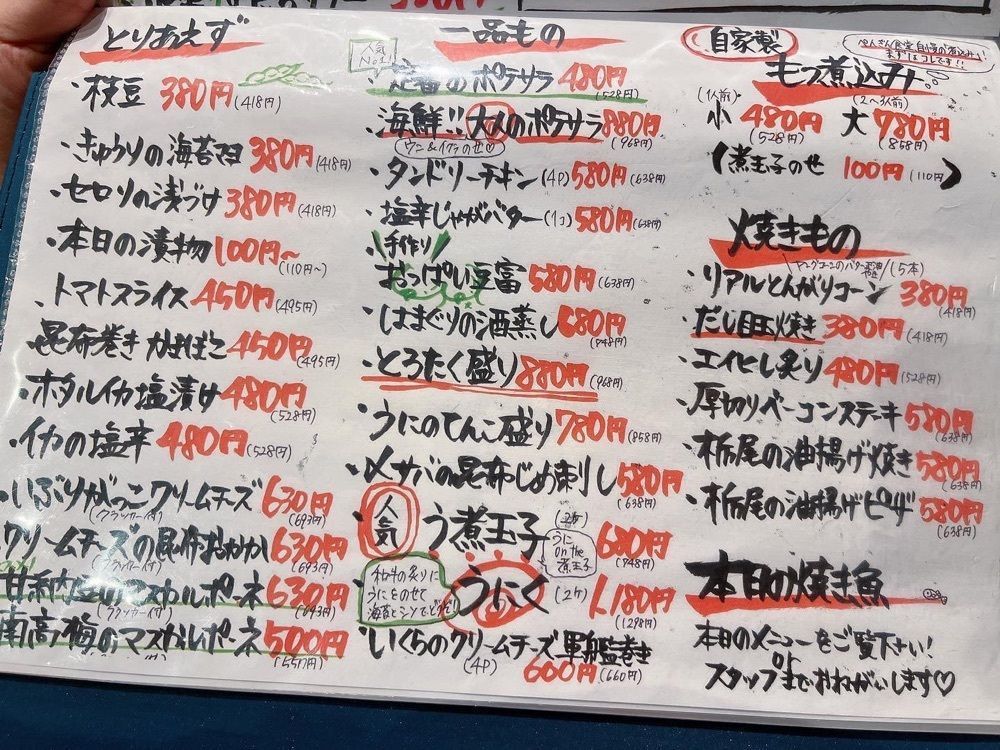 とりあえず
・枝豆 380円(418円)
・きゅうりの海苔マヨ 380円(418円)
・セロリの浅づけ 380円(418円)
・本日の漬物 100円〜(110円〜)
・トマトスライス 450円(495円)
・昆布巻きかまぼこ 450円(495円)
・ホタルイカ塩漬け 480円(528円)
・イカの塩辛 480円(528円)
・いぶりがっこクリームチーズ 630円(693円)
(クラッカー付)
クリームチーズの昆布おかか 630円(693円)
(クラッカー付)
甘納豆のマスカルポーネ 630円(693円)
(クラッカー付)
南高梅のマスカルポーネ 500円(550円)
一品もの
人気No.1!
定番のポテサラ 480円(528円)
・海鮮!!大人のポテサラ 880円(968円)
ウニ&イクラのせ♡
・タンドリーチキン(4P) 580円(638円)
・塩辛じゃがバター(1コ) 580円(638円)
手作り
おっぱい豆富 580円(638円)
・はまぐりの酒蒸し 680円(748円)
・とろたく盛り 880円(968円)
・うにのてんこ盛り 780円(858円)
・〆サバの昆布じめ刺し 580円(638円)
・人気 う煮玉子(2ケ) 680円(748円)
うに on the 煮玉子
・和牛の炙りにうにをのせて海苔とシソでどうぞ!
うにく(2ケ) 1,180円(1298円)
・いくらのクリームチーズ軍艦巻き
(4P) 600円(660円)
自家製
もつ煮込み
(1人前) (2〜3人前)
小 480円(528円) 大 780円(858円)
(煮玉子のせ 100円(110円))
焼きもの
ヤングコーンのバター醤油(5本)
・リアルとんがりコーン 380円(418円)
・だし目玉焼き 380円(418円)
・エイヒレ炙り 480円(528円)
・厚切りベーコンステーキ 580円(638円)
・栃尾の油揚げ焼き 580円(638円)
・栃尾の油揚げピザ 580円(638円)
本日の焼き魚
本日のメニューをご覧下さい!
or
スタッフまでおねがいします♡